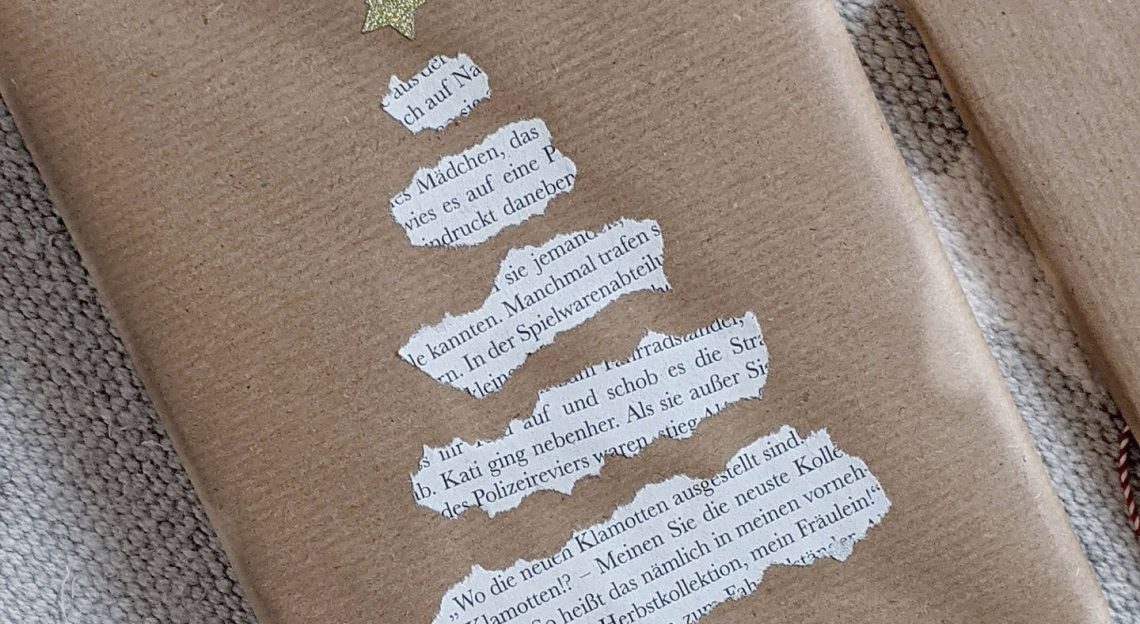 aus der
ch auf Na
es Mädchen, das
wies es auf eine P
indruckt daneben
sie jemand
le kannten. Manchmal trafen s
n. In der Spielwarenabteilu
kleine
Fahrradständer,
auf und schob es die Stra
lb. Kati ging nebenher. Als sie außer Si
des Polizeireviers waren, stieg
„Wo die neuen Klamotten ausgestellt sind
Klamotten!? – Meinen Sie die neuste Kolle
So heißt das nämlich in meinen vorneh-
Herbstkollektion, mein Fräulein!“
zum